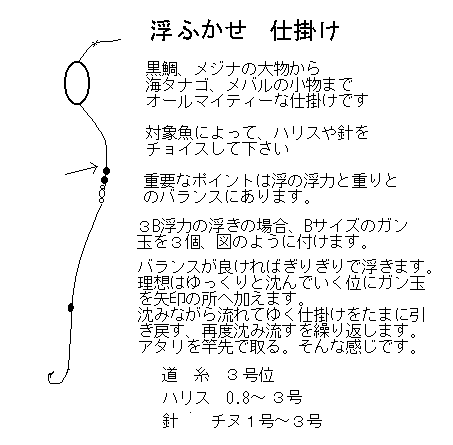 浮ふかせ 仕掛け
黒鯛、メジナの大物から
海タナゴ、メバルの小物まで
オールマイティーな仕掛けです
対象魚によって、ハリスや針を
チョイスして下さい
重要なポイントは浮の浮力と重りと
のバランスにあります。
３B浮力の浮きの場合、Bサイズのガン
玉を３個、図のように付けます。
バランスが良ければぎりぎりで浮きます。
理想はゆっくりと沈んでいく位にガン玉
を矢印の所へ加えます。
沈みながら流れてゆく仕掛けをたまに引
き戻す、再度沈み流すを繰り返します。
アタリを竿先で取る。そんな感じです。
道 糸 ３号位
ハリス 0.8～３号
針 チヌ１号～３号